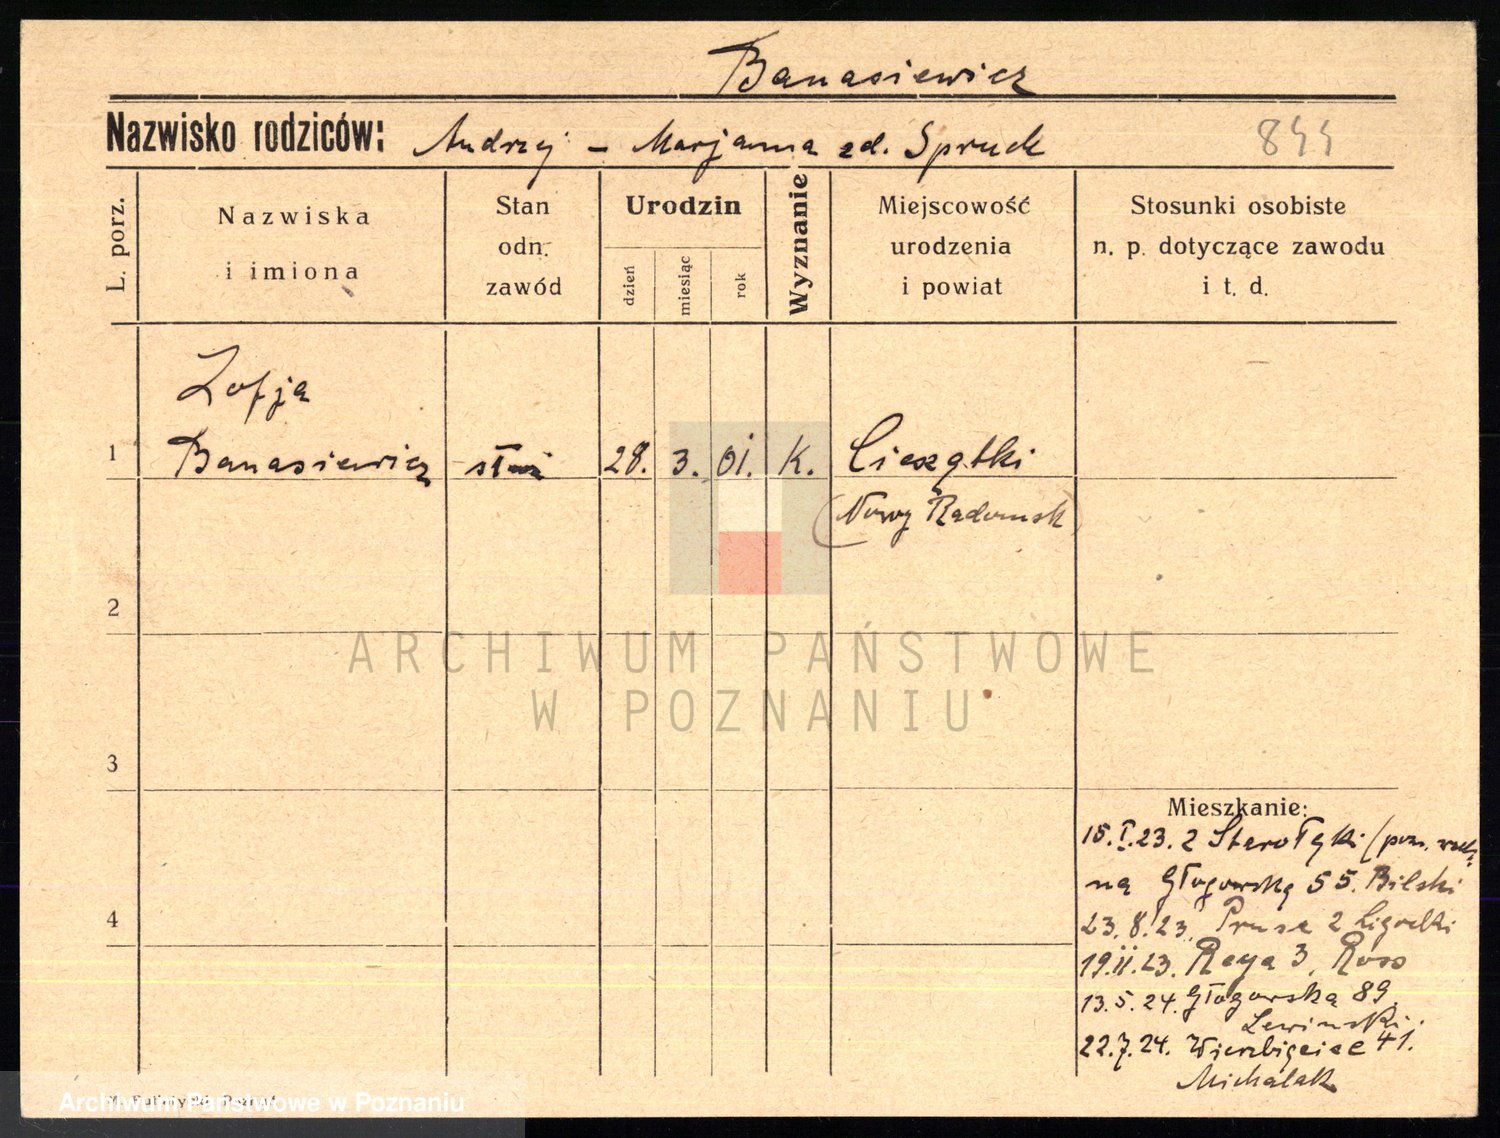 Banasiewicz
Nazwisko rodziców: Andrzej – Marjanna zd. Spruch 844
L. porz.
Nazwiska i imiona
Stan odn. zawód
Urodzin
dzień miesiąc rok
Wyznanie
Miejscowość urodzenia i powiat
Stosunki osobiste n. p. dotyczące zawodu i t. d.
Zofja
1 Banasiewicz służ 28. 3. 01. K. Cieszątki
(Nowy Radomsk)
2
ARCHIWUM PAŃSTWOWE
W POZNANIU
3
Mieszkanie:
15.I.23. z Starołęki (pozn. wsch.
na Głogowską 55. Bilski
4
23.8.23. Prusa 2
19.11.23. Reya 3. Ross
13.5.24. Głogowska 89.
Lewinski.
22.7.24. Wierzbięcice 41.
Michalak
Archiwum Państwowe w Poznaniu